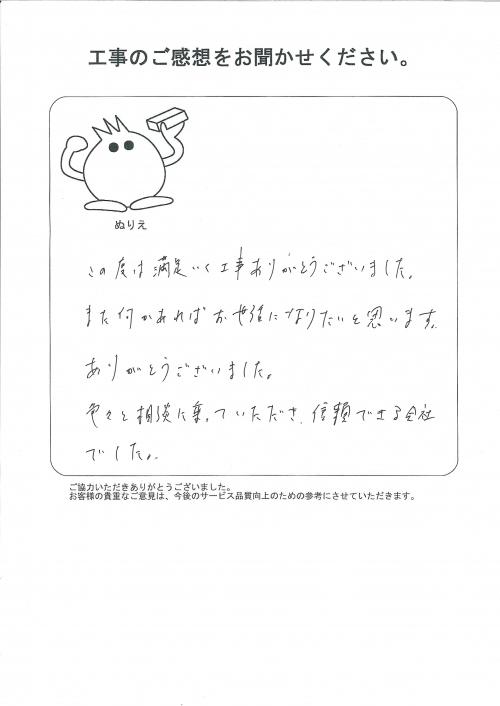 工事のご感想をお聞かせください。
ぬりえ
この度は満足いく工事ありがとうございました。
また何かあればお世話になりたいと思います。
ありがとうございました。
色々と相談に乗っていただき、信頼できる会社
でした。
ご協力いただきありがとうございました。
お客様の貴重なご意見は、今後のサービス品質向上のための参考にさせていただきます。